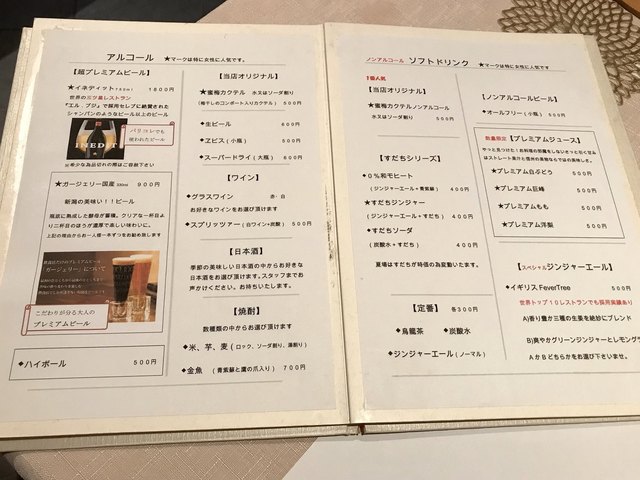 アルコール ★マークは特に女性に人気です。
【超プレミアムビール】
★イネディット 1800円
世界の三ツ星レストラン
『エル.ブジ』で採用セレブに絶賛された
シャンパンのようなビール以上のビール
INEDIT
パリコレでも
使われたビール
※希少な為品切れの際はご容赦下さい
★ガージェリー国産 330ml 900円
新潟の美味い!!ビール
瓶底に熟成した酵母が蓄積。クリアな一杯目より
二杯目のほうが濃厚で楽しい味わいに。
上記の理由からお一人様一本ずつをお勧め致します
「ガージェリー」について
こだわりが分る大人の
プレミアムビール
◆ハイボール 500円
【当店オリジナル】
★蜜梅カクテル 水又はソーダ割り
(梅干しのコンポート入りカクテル) 500円
◆生ビール 600円
◆ヱビス(小瓶) 500円
◆スーパードライ(大瓶) 600円
【ワイン】
◆グラスワイン 赤・白
お好きなワインをお選び頂けます
◆スプリッツァー(白ワイン+炭酸) 500円
【日本酒】
季節の美味しい日本酒の中からお好きな
日本酒をお選び頂けます、スタッフまでお
声がけください。お待ちいたします。
【焼酎】
数種類の中からお選び頂けます
◆米、芋、麦(ロック、ソーダ割り、湯割り)
◆金魚 (青紫蘇と鷹の爪入り) 700円
ノンアルコール ソフトドリンク ★マークは特に女性に人気です
1番人気
【当店オリジナル】
★蜜梅カクテルノンアルコール
水又はソーダ割り 500円
【すだちシリーズ】
★0%和モヒート
(ジンジャーエール+青紫蘇) 400円
★すだちジンジャー
(ジンジャーエール+すだち) 400円
★すだちソーダ
(炭酸水+すだち) 400円
夏場はすだちが時価の為変動いたます。
【定番】 各300円
◆烏龍茶 ◆炭酸水
◆ジンジャーエール(ノーマル)
【ノンアルコールビール】
◆オールフリー(小瓶) 500円
数量限定【プレミアムジュース】
★プレミアム白ぶどう 500円
★プレミアム巨峰 500円
★プレミアムもも 500円
★プレミアム洋梨 500円
【スペシャルジンジャーエール】
◆イギリスFeverTree 500円
世界トップ10レストランでも採用実績あり
A)香り豊か三種の生姜を絶妙にブレンド
B)爽やかグリーンジンジャーとレモングラ
AかBどちらかをお選び下さいませ。